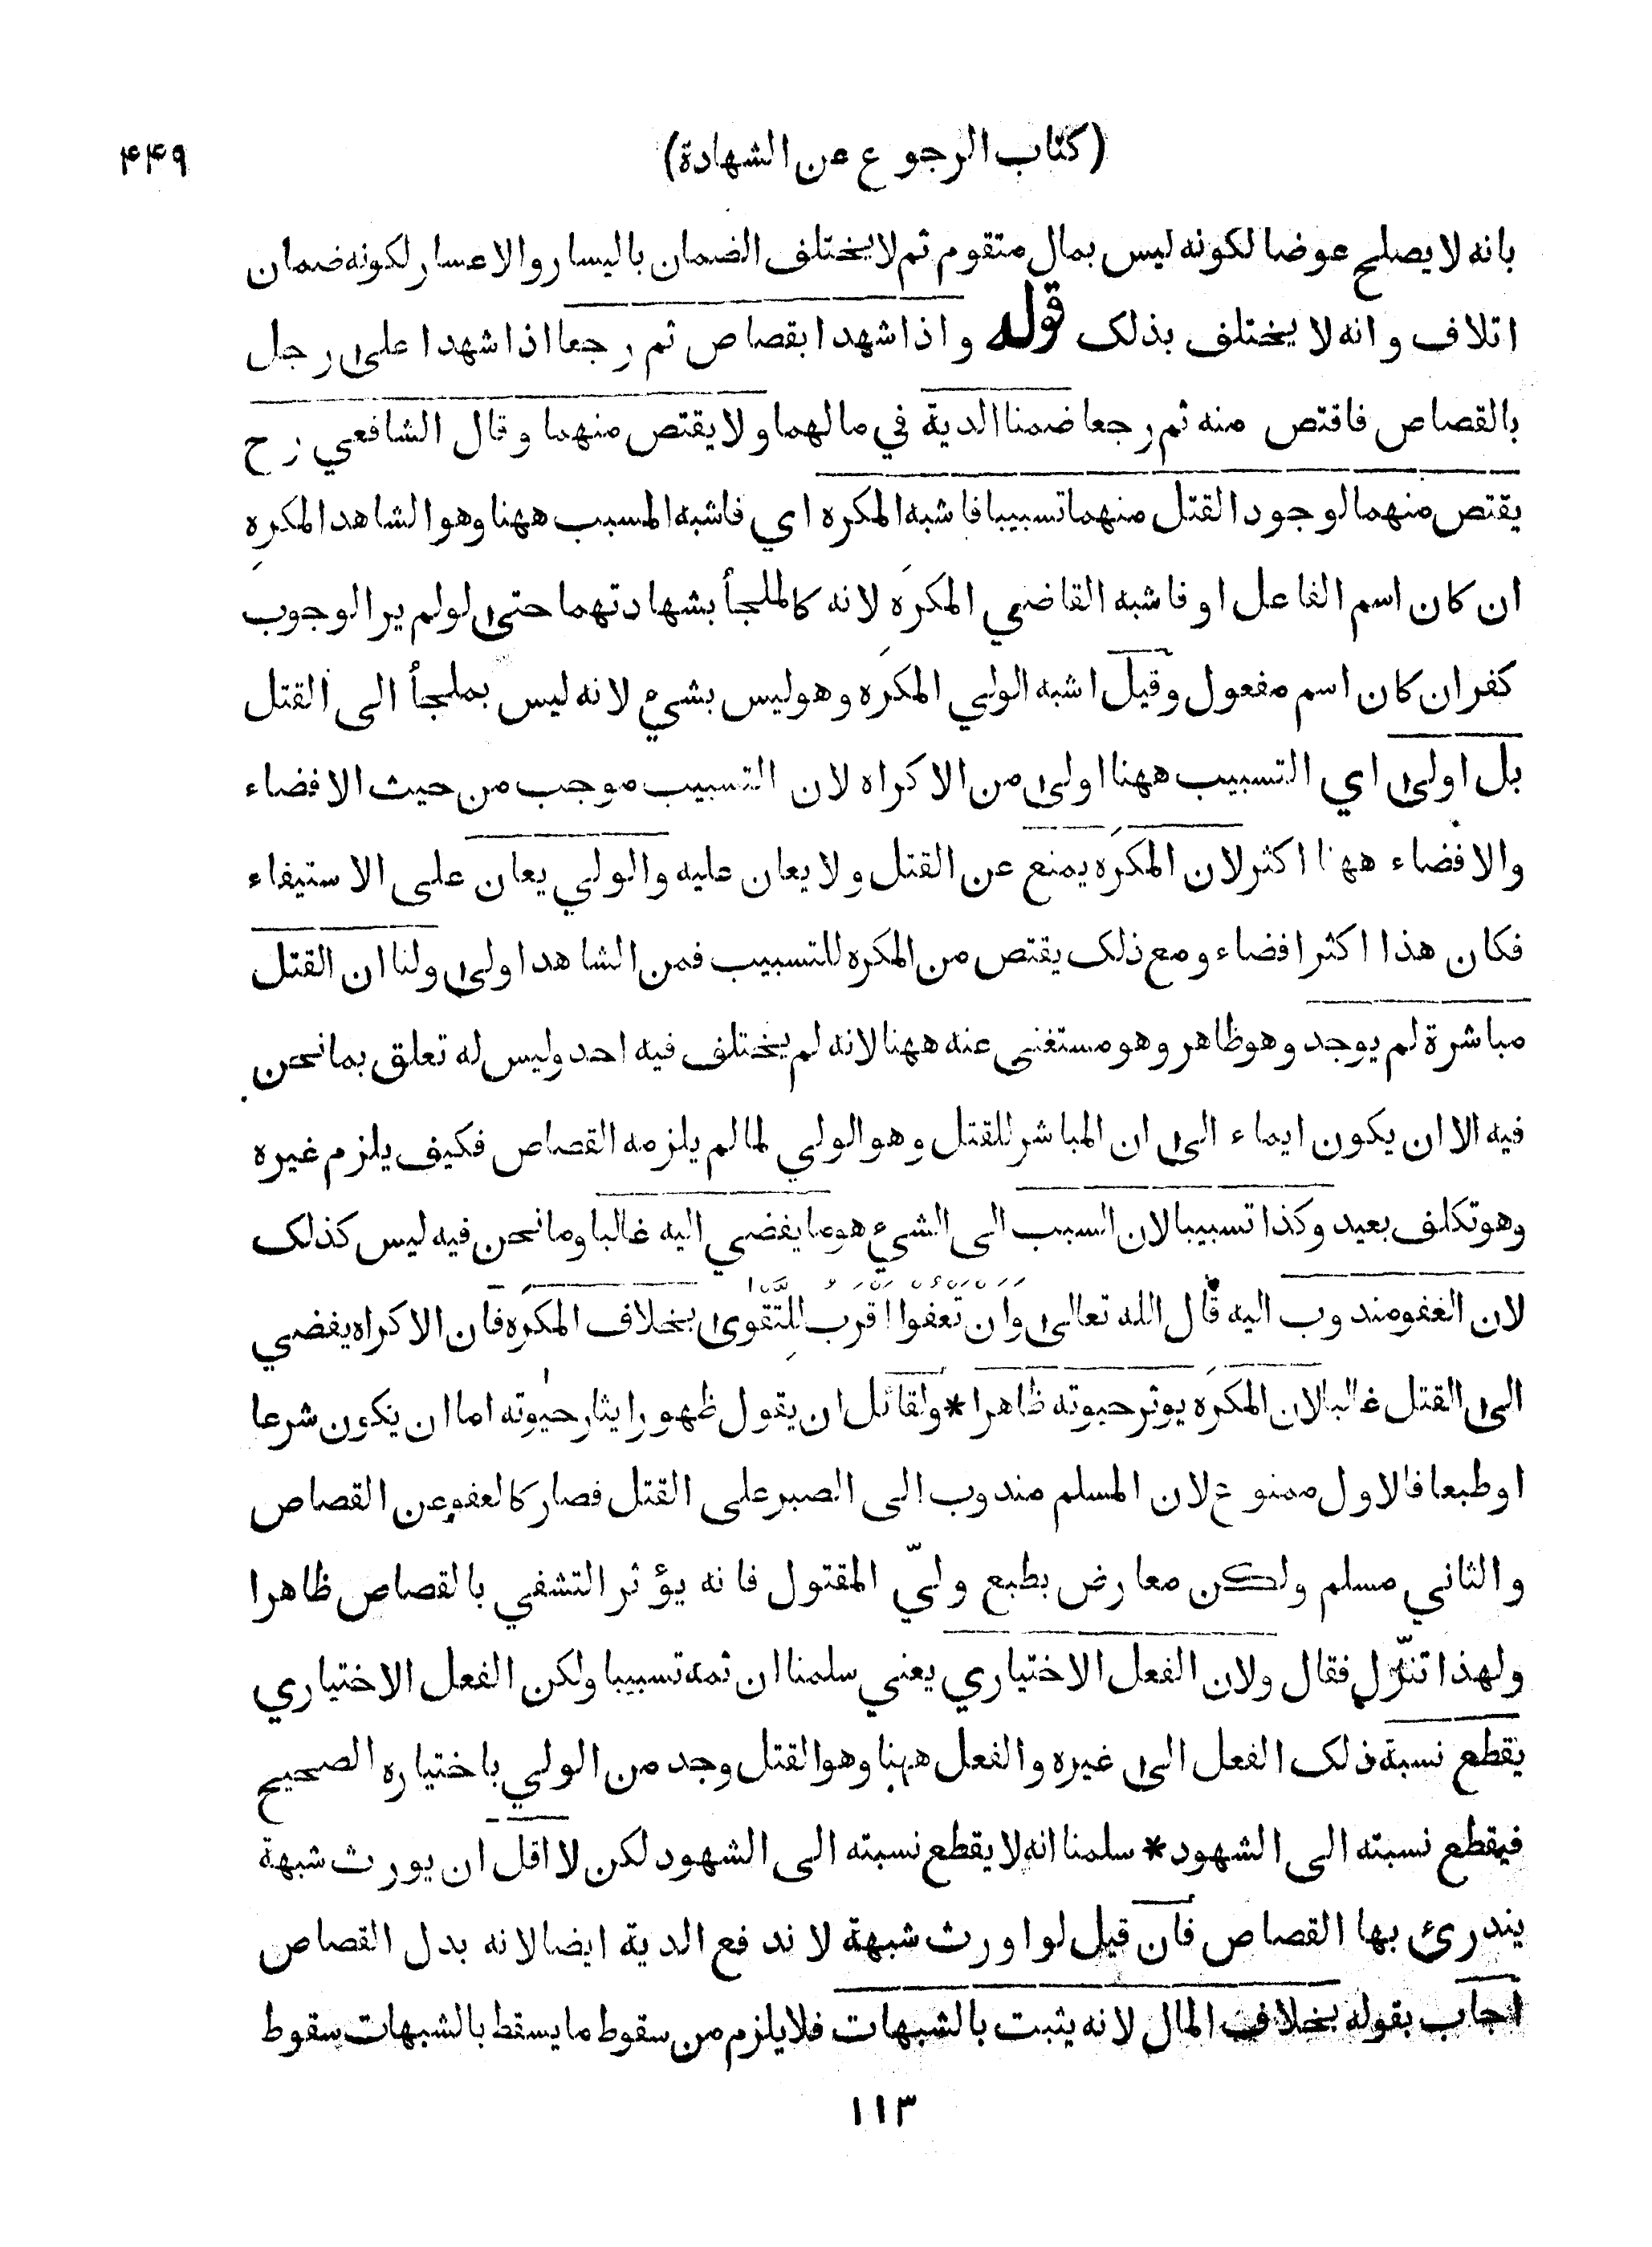 (كتاب الرجوع عن الشهادة)
۴۴۹
بانه لا يصلح عوضا لكونه ليس بمال متقوم ثم لا يختلف الضمان باليسار والاعسار لكونه ضمان
اتلاف وانه لا يختلف بذلك قوله واذا شهدا بقصاص ثم رجعا اذا شهدا على رجل
بالقصاص فاقتص منه ثم رجعا ضمنا الدية في مالهما ولا يقتص منهما وقال الشافعي رح
يقتص منهما لوجود القتل منهما تسبيبا فاشبه المكره اي فاشبه المسبب ههنا وهو الشاهد المكرِه
ان كان اسم الفاعل او فاشبه القاضي المكرَه لانه كالملجأ بشهادتهما حتى لو لم ير الوجوب
كفر ان كان اسم مفعول وقيل اشبه الولي المكرَه وهو ليس بشيء لانه ليس بملجأ الى القتل
بل اولى اي التسبيب ههنا اولى من الاكراه لان التسبيب موجب من حيث الافضاء
والافضاء ههنا اكثر لان المكرَه يمنع عن القتل ولا يعان عليه والولي يعان على الاستيفاء
فكان هذا اكثر افضاء ومع ذلك يقتص من المكره للتسبيب فمن الشاهد اولى ولنا ان القتل
مباشرة لم يوجد وهو ظاهر وهو مستغنى عنه ههنا لانه لم يختلف فيه احد وليس له تعلق بما نحن
فيه الا ان يكون ايماء الى ان المباشر للقتل وهو الولي لما لم يلزمه القصاص فكيف يلزم غيره
وهو تكلف بعيد وكذا تسبيبا لان السبب الى الشيء هو ما يفضي اليه غالبا وما نحن فيه ليس كذلك
لان العفو مندوب اليه قال الله تعالى وَاَن تَعْفُوا اَقْرَبُ لِلتَّقْوى بخلاف المكرَه فان الاكراه يفضي
الى القتل غالبا لان المكرَه يوثر حيوته ظاهرا * ولقائل ان يقول ظهور ايثار حيوته اما ان يكون شرعا
او طبعا فالاول ممنوع لان المسلم مندوب الى الصبر على القتل فصار كالعفو عن القصاص
والثاني مسلم ولكن معارض بطبع وليّ المقتول فانه يؤثر التشفي بالقصاص ظاهرا
ولهذا تنزّل فقال ولان الفعل الاختياري يعني سلمنا ان ثمه تسبيبا ولكن الفعل الاختياري
يقطع نسبة ذلك الفعل الى غيره والفعل ههنا وهو القتل وجد من الولي باختياره الصحيح
فيقطع نسبته الى الشهود * سلمنا انه لا يقطع نسبته الى الشهود لكن لا اقل ان يورث شبهة
يندرئ بها القصاص فان قيل لو اورث شبهة لاندفع الدية ايضا لانه بدل القصاص
اجاب بقوله بخلاف المال لانه يثبت بالشبهات فلا يلزم من سقوط ما يسقط بالشبهات سقوط
١١٣